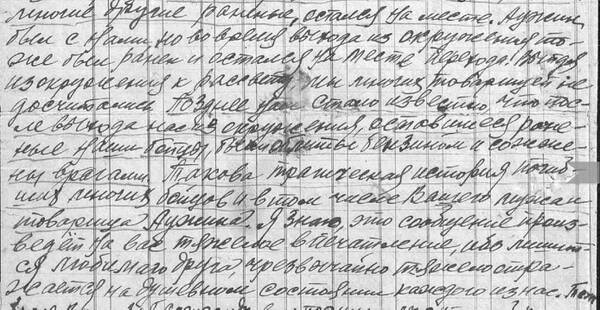 многие другие раненые, остался на месте. Лужин
был с нами, но во время выхода из окружения то-
же был ранен и остался на месте перехода. Выйдя
из окружения к рассвету мы многих товарищей не
досчитались. Позднее нам стало известно, что пос-
ле выхода нас из окружения, оставшиеся ране-
ные наши бойцы, были облиты бензином и сожже-
ны врагами. Такова трагическая история погиб-
ших многих бойцов и в том числе Вашего мужа и
товарища Лужина. Я знаю, это сообщение произ-
ведёт на вас тяжелое впечатление, ибо лишит-
ся любимаго друга, чрезвычайно тяжело отра-
жается на душевном состоянии каждого из нас.